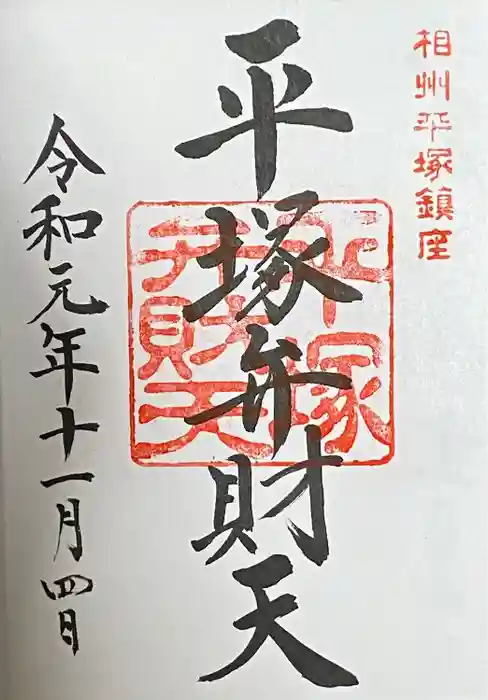 相州平塚鎮座
平塚弁財天
平塚
弁財天
令和元年十一月四日